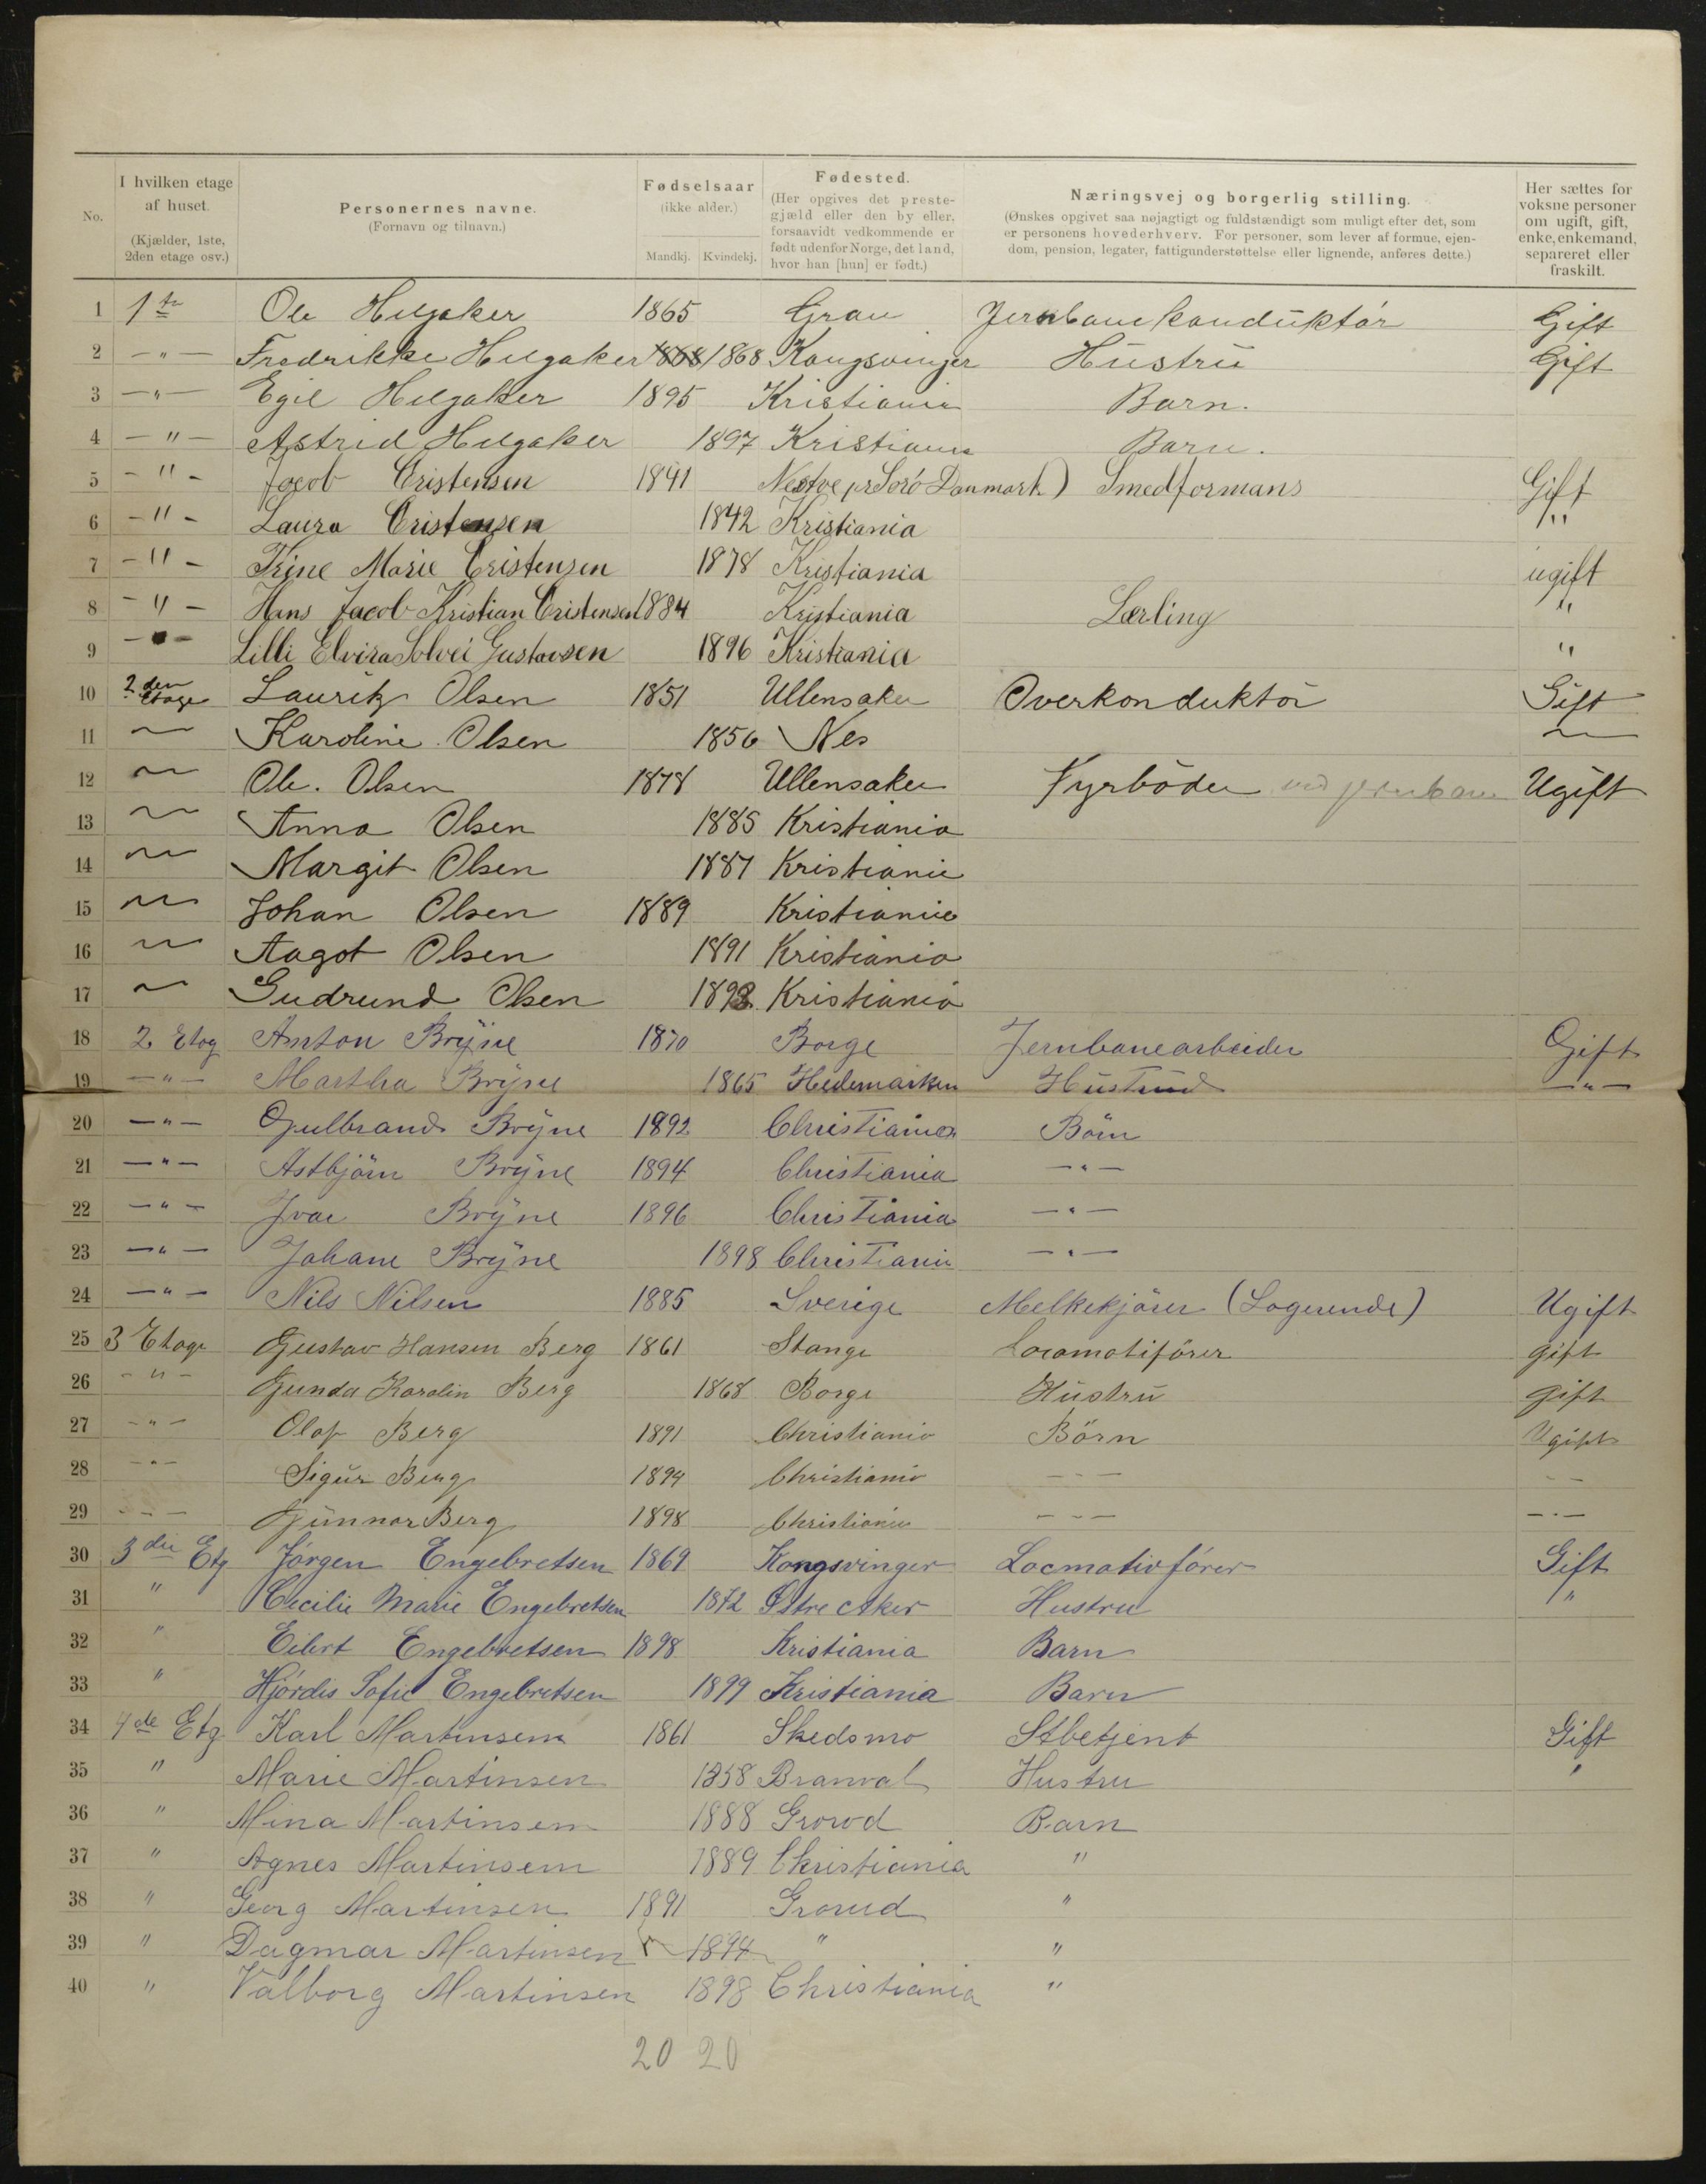 No. I hvilken etage af huset. (Kjælder, 1ste, 2den etage osv.) Personernes navne. (Fornavn og tilnavn.) Fødselsaar (ikke alder.) Mandkj. Kvindekj. Fødested. (Her opgives det prestegjæld eller den by eller, forsaavidt vedkommende er født udenfor Norge, det land, hvor han [hun] er født.) Næringsvej og borgerlig stilling. (Ønskes opgivet saa nøjagtigt og fuldstændigt som muligt efter det, som er personens hovederhverv. For personer, som lever af formue, ejendom, pension, legater, fattigunderstøttelse eller lignende, anføres dette.) Her sættes for voksne personer om ugift, gift, enke, enkemand, separeret eller fraskilt.
1 1te Ole Helgaker 1865 Gran Jernbanekonduktör Gift
2 —"— Fredrikke Helgaker 1868 1868 Kongsvinger Hustru Gift
3 —"— Egil Helgaker 1895 Kristiania Barn.
4 —"— Astrid Helgaker 1897 Kristiania Barn.
5 —"— Jacob Cristensen 1841 Nestve pr Sorö Danmark) Smedformans Gift
6 —"— Laura Cristensen 1842 Kristiania "
7 —"— Trine Marie Cristensen 1878 Kristiania ugift
8 —"— Hans Jacob Kristian Cristensen 1884 Kristiania Lærling "
9 —"— Lilli Elvira Solvei Gustavsen 1896 Kristiania "
10 2den Etage Lauritz Olsen 1851 Ullensaker Overkonduktör Gift
11 — Karoline Olsen 1856 Nes —
12 — Ole. Olsen 1878 Ullensaker Fyrböder ved jernbane Ugift
13 — Anna Olsen 1885 Kristiania
14 — Margit Olsen 1887 Kristiania
15 — Johan Olsen 1889 Kristiania
16 — Aagot Olsen 1891 Kristiania
17 — Gudrund Olsen 1893 Kristiania
18 2 Etag Anton Brÿne 1870 Borge Jernbanearbeider Gift
19 —"— Martha Brÿne 1865 Hedemarken Hustrud —"—
20 —"— Gulbrand Brÿne 1892 Christiania Börn
21 —"— Astbjörn Brÿne 1894 Christiania —"—
22 —"— Ivar Brÿne 1896 Christiania —"—
23 —"— Johane Brÿne 1898 Christiania —"—
24 —"— Nils Nilsen 1885 Sverige Melkekjörer (Logerende) Ugift
25 3 Etage Gustav Hansen Berg 1861 Stange Locomotiförer gift
26 —"— Gunda Karolin Berg 1868 Borge Hustru gift
27 —"— Olaf Berg 1891 Christiania Börn Ugift
28 —"— Sigur Berg 1894 Christiania —"— —"—
29 —"— Gunnar Berg 1898 Christiania —"— —"—
30 3die Etg Jörgen Engebretsen 1869 Kongsvinger Locmotivförer Gift
31 " Cecilie Marie Engebretsen 1872 Östre Aker Hustru "
32 " Eilert Engebretsen 1898 Kristiania Barn
33 " Hjördis Sofie Engebretsen 1899 Kristiania Barn
34 4de Etg Karl Martinsen 1861 Skedsmo Stbetjent Gift
35 " Marie Martinsen 1858 Branval Hustru "
36 " Mina Martinsen 1888 Grorud Barn
37 " Agnes Martinsem 1889 Christiania "
38 " Georg Martinsen 1891 Grorud "
39 " Dagmar Martinsen 1894 " "
40 " Valborg Martinsen 1898 Christiania "
20 20